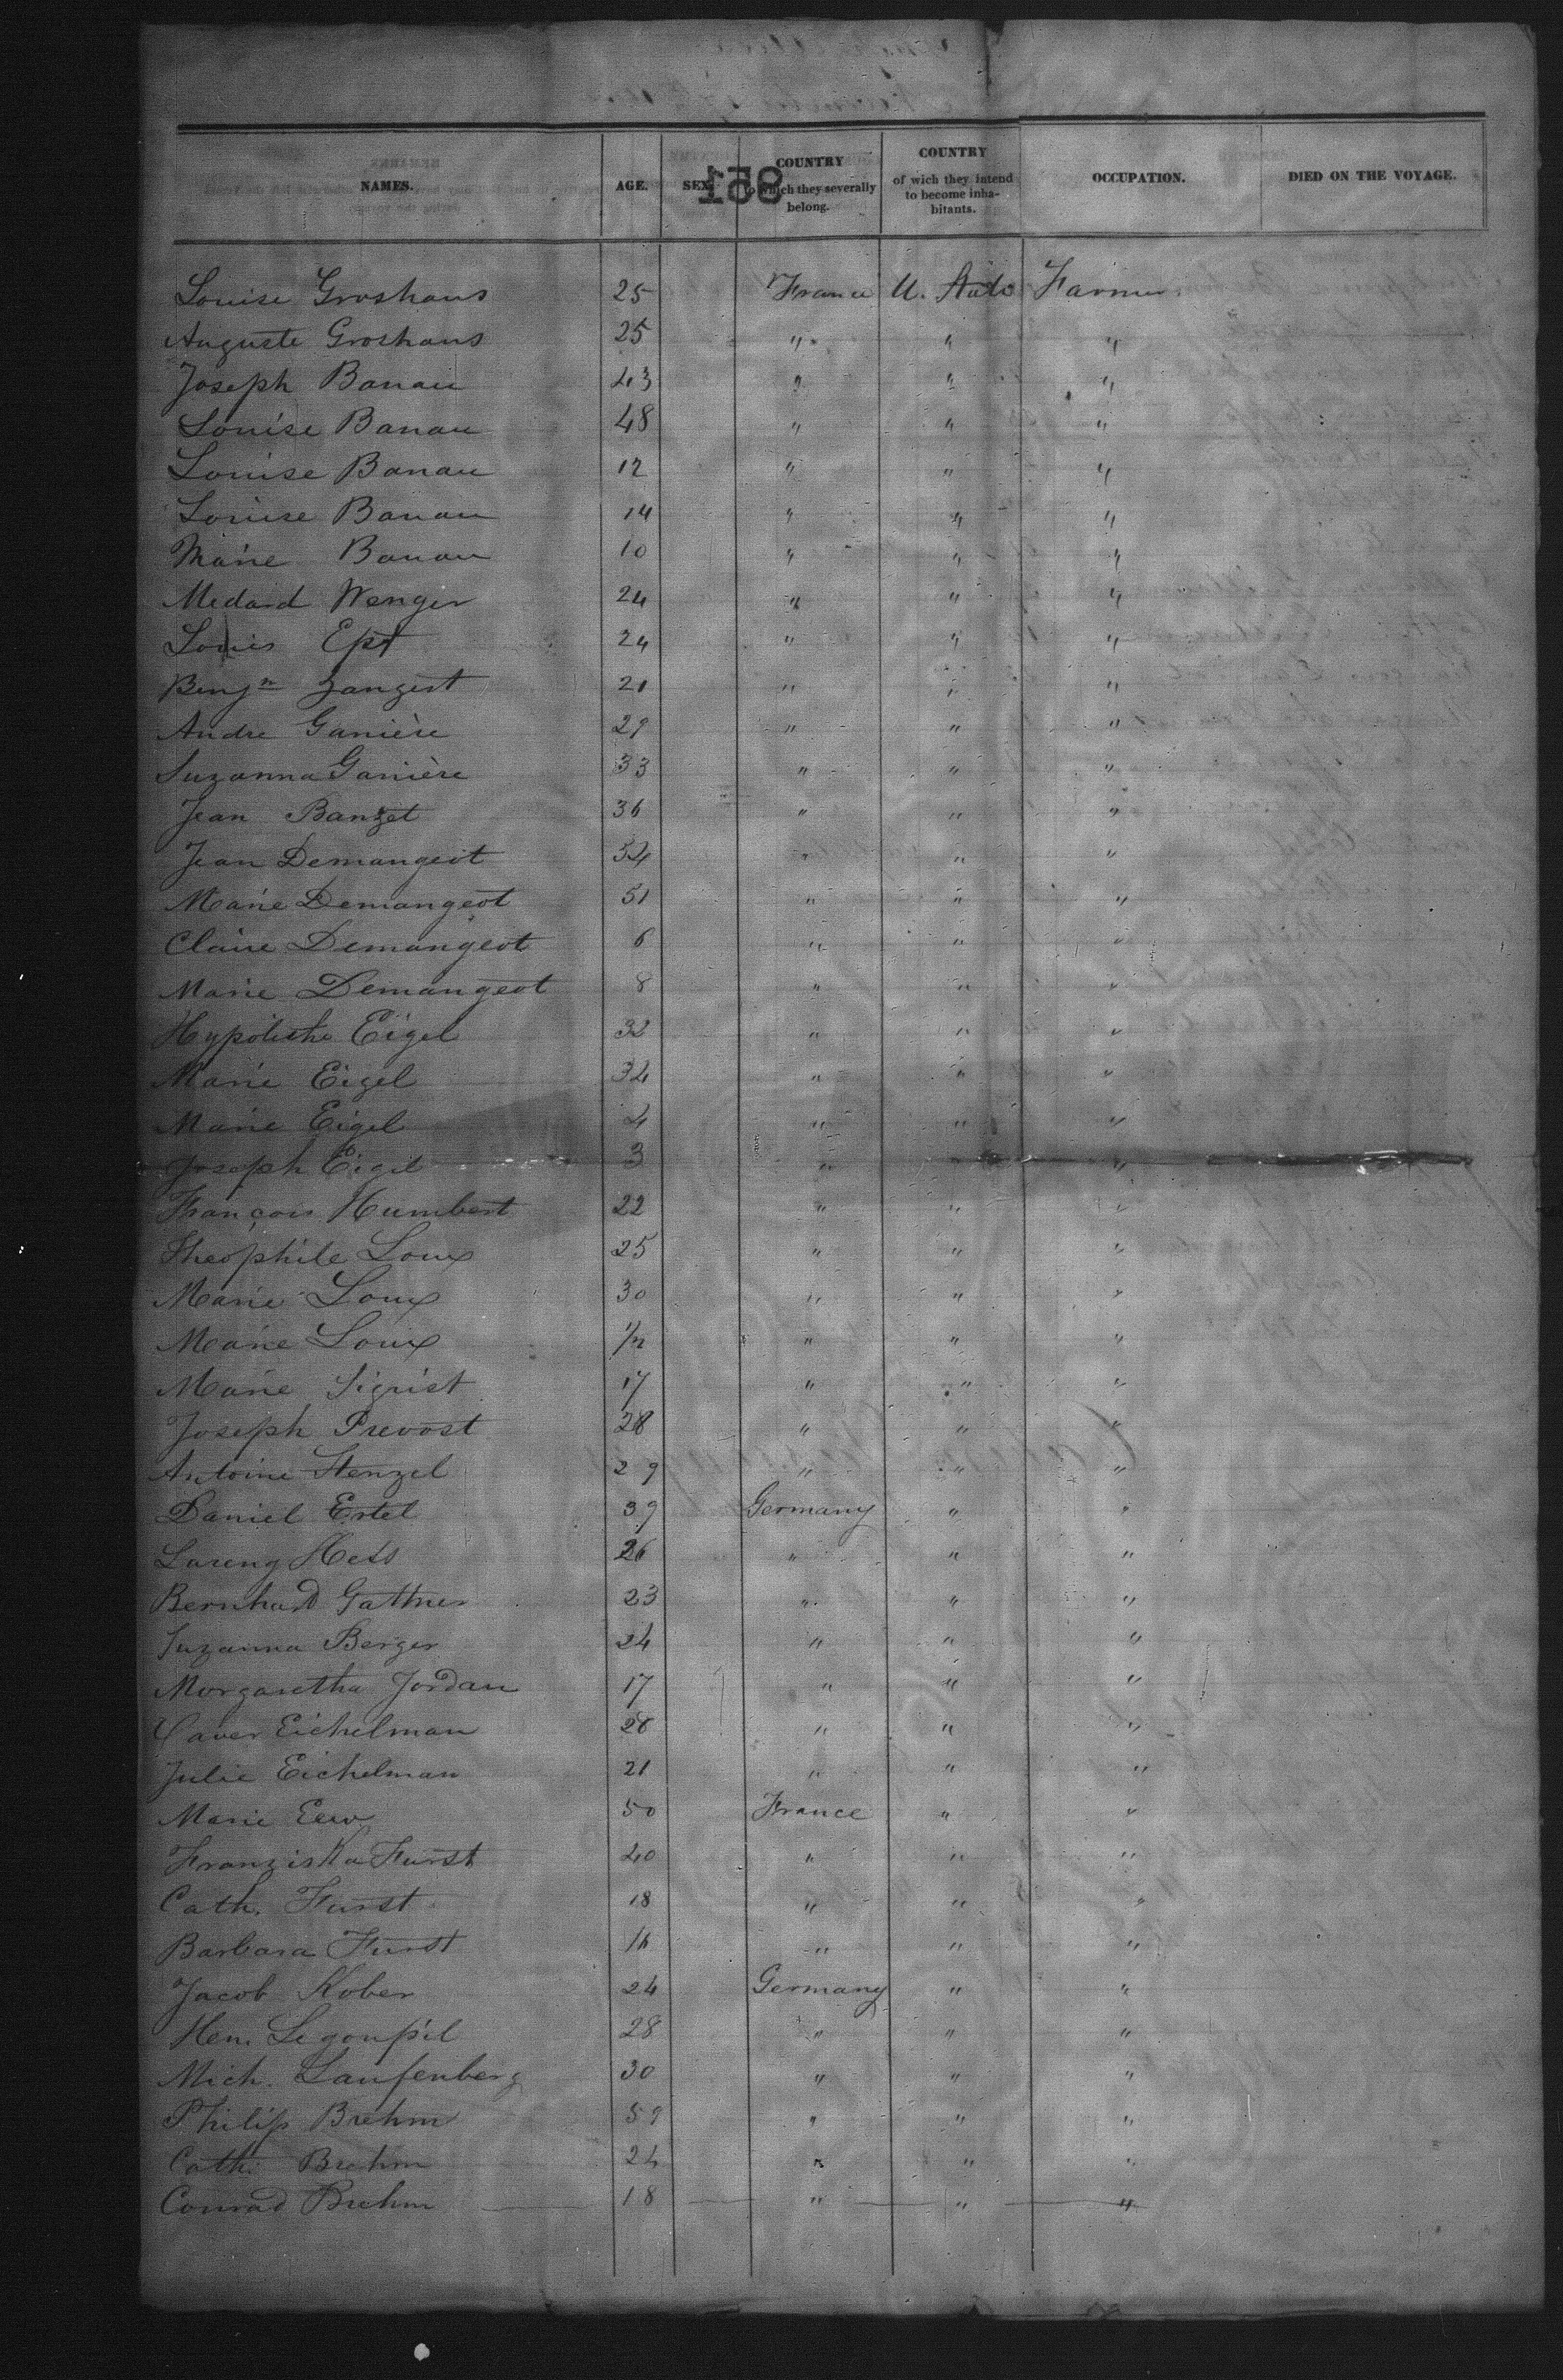 NAMES. AGE. SEX. COUNTRY to which they severally belong. COUNTRY of wich they intend to become inhabitants. OCCUPATION. DIED ON THE VOYAGE.
951
Louise Groshans 25 France U. State Farmer
Auguste Groshans 25 " " "
Joseph Banau 43 " " "
Louise Banau 48 " " "
Louise Banau 12 " " "
Louise Banau 14 " " "
Marie Banau 10 " " "
Medard Wenger 24 " " "
Louis Ept 24 " " "
Benjn Zangert 21 " " "
Andre Ganière 29 " " "
Suzanna Ganière 33 " " "
Jean Banzet 36 " " "
Jean Demangeot 54 " " "
Marie Demangeot 51 " " "
Claire Demangeot 6 " " "
Marie Demangeot 8 " " "
Hypolithe Eigel 32 " " "
Marie Eigel 34 " " "
Marie Eigel 4 " " "
Joseph Eigel 3 " " "
François Humbert 22 " " "
Theophile Loux 25 " " "
Marie Loux 30 " " "
Marie Loux 1/2 " " "
Marie Sigrist 17 " " "
Joseph Prevost 28 " " "
Antoine Stenzel 29 " " "
Daniel Ertel 39 Germany " "
Loreng Hess 26 " " "
Bernhard Gattner 23 " " "
Suzanna Berger 24 " " "
Morgaretha Jordan 17 " " "
Xaver Eichelman 28 " " "
Julie Eichelman 21 " " "
Marie 50 France " "
Franziska Furst 40 " " "
Cath. Furst 18 " " "
Barbara Furst 16 " " "
Jacob Kober 24 Germany " "
Hen. Legoupil 28 " " "
Mich. Laufenberg 30 " " "
Philip Brehm 59 " " "
Cath. Brehm 24 " " "
Conrad Brehm 18 " " "